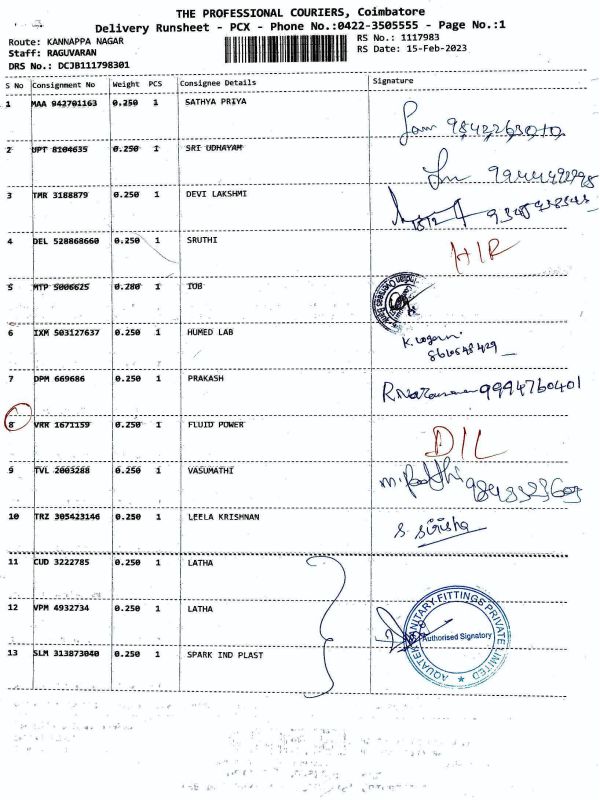 THE PROFESSIONAL COURIERS, Coimbatore
Delivery Runsheet - PCX - Phone No.:0422-3505555 - Page No.:1
Route: KANNAPPA NAGAR
RS No.: 1117983
Staff: RAGUVARAN
RS Date: 15-Feb-2023
DRS No.: DCJB111798301
S No Consignment No Weight PCS Consignee Details Signature
1 MAA 942701163 0.250 1 SATHYA PRIYA
2 UPT 8104635 0.250 1 SRI UDHAYAM
3 TMR 3188879 0.250 1 DEVI LAKSHMI
4 DEL 528868660 0.250 1 SRUTHI HIR
5 MTP 5006625 0.280 1 IOB
6 IXM 503127637 0.250 1 HUMED LAB
7 DPM 669686 0.250 1 PRAKASH 9994760401
8 VRR 1671159 0.250 1 FLUID POWER DIL
9 TVL 2003288 0.250 1 VASUMATHI
10 TRZ 305423146 0.250 1 LEELA KRISHNAN S. Sirisha
11 CUD 3222785 0.250 1 LATHA
12 VPM 4932734 0.250 1 LATHA
AQUATEK SANITARY FITTINGS PRIVATE LIMITED
Authorised Signatory
13 SLM 313873040 0.250 1 SPARK IND PLAST